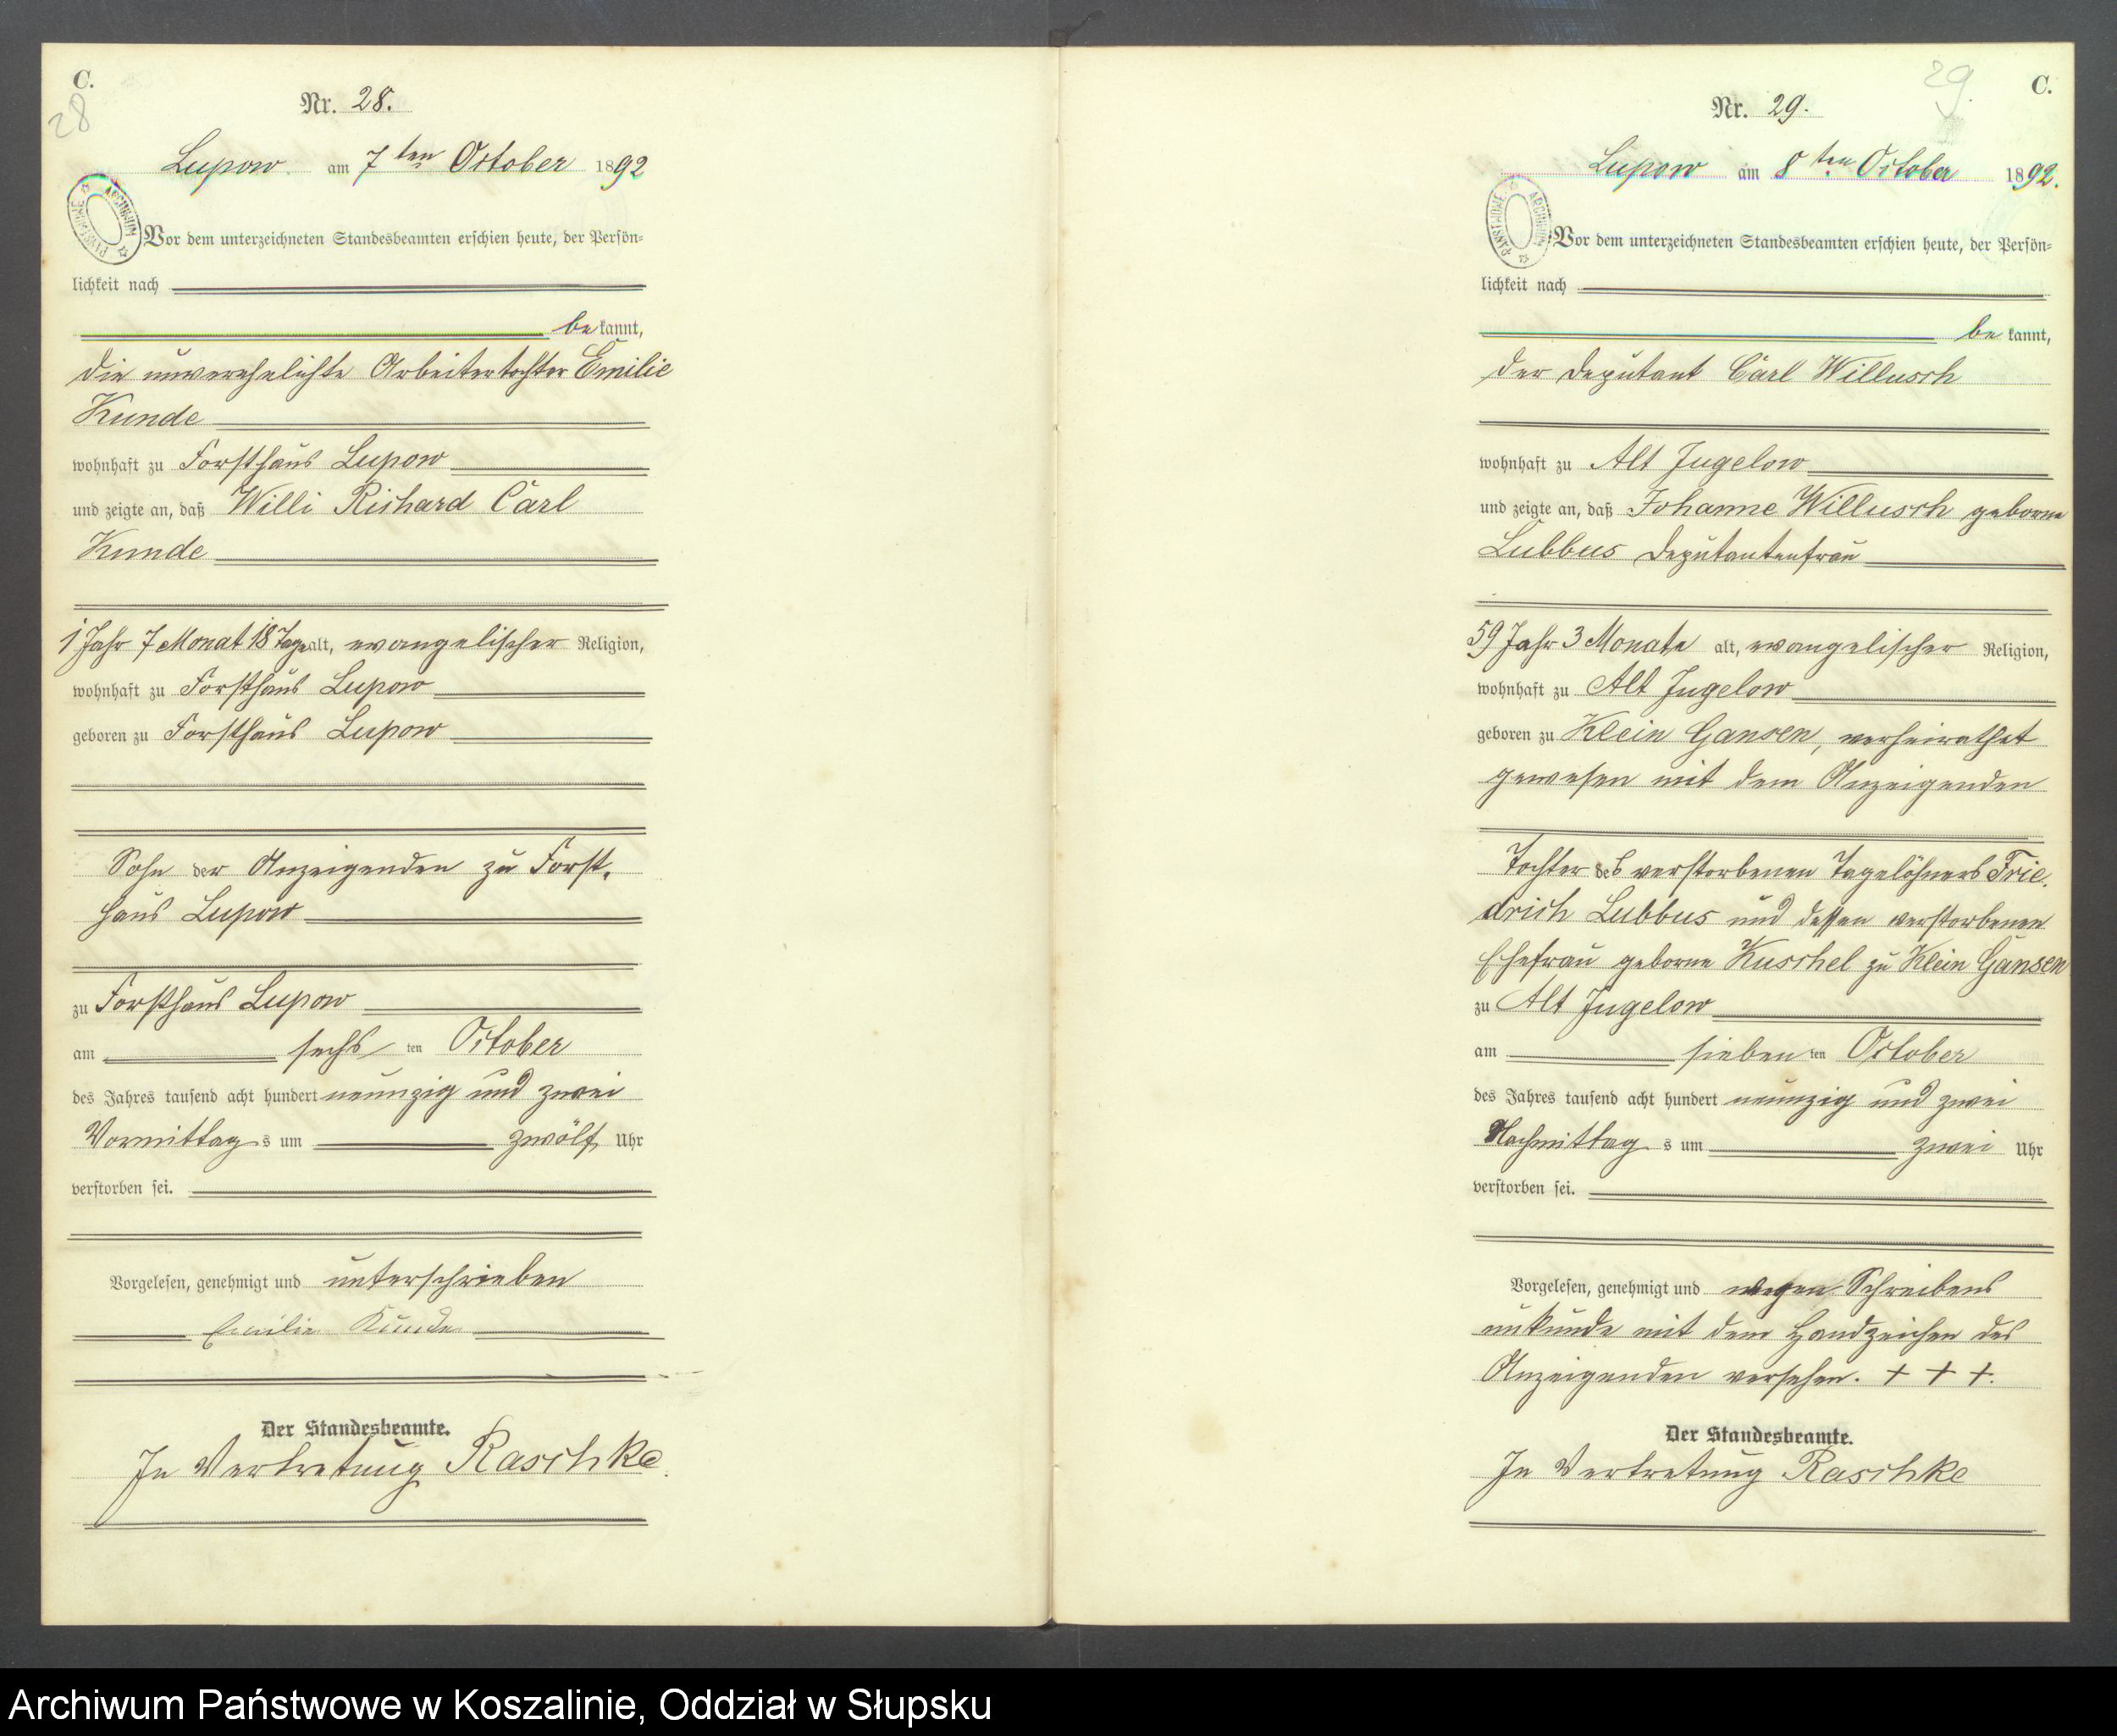 C.
28
Nr. 28.
Lupow am 7ten October 1892
ARCHIWUM PAŃSTWOWE
Vor dem unterzeichneten Standesbeamten erschien heute, der Persön-
lichkeit nach
bekannt,
die unverehelichte Arbeitertochter Emilie
Kunde
wohnhaft zu Forsthaus Lupow
und zeigte an, daß Willi Richard Carl
Kunde
1 Jahr 7 Monat 18 Tage alt, evangelischer Religion,
wohnhaft zu Forsthaus Lupow
geboren zu Forsthaus Lupow
Sohn der Anzeigenden zu Forst-
haus Lupow
zu Forsthaus Lupow
am sechsten October
des Jahres tausend acht hundert neunzig und zwei
Vormittags um zwölf Uhr
verstorben sei.
Vorgelesen, genehmigt und unterschrieben
Emilie Kunde
Der Standesbeamte.
In Vertretung Raschke.
29.
C.
Nr. 29.
Lupow am 8ten October 1892.
ARCHIWUM PAŃSTWOWE
Vor dem unterzeichneten Standesbeamten erschien heute, der Persön-
lichkeit nach
bekannt,
der Deputant Carl Willusch
wohnhaft zu Alt Jugelow
und zeigte an, daß Johanne Willusch geborne
Lubbus Deputantenfrau
59 Jahr 3 Monate alt, evangelischer Religion,
wohnhaft zu Alt Jugelow
geboren zu Klein Gansen, verheirathet
gewesen mit dem Anzeigenden
Tochter des verstorbenen Tagelöhners Frie-
drich Lubbus und dessen verstorbenen
Ehefrau geborne Kuschel zu Klein Gansen
zu Alt Jugelow
am siebenten October
des Jahres tausend acht hundert neunzig und zwei
Nachmittags um zwei Uhr
verstorben sei.
Vorgelesen, genehmigt und wegen Schreibens
unkunde mit dem Handzeichen des
Anzeigenden versehen. + + +.
Der Standesbeamte.
In Vertretung Raschke
Archiwum Państwowe w Koszalinie, Oddział w Słupsku